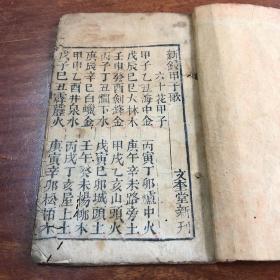 新鐫甲子歌
文奎堂新刊
六十花甲子
甲子乙丑海中金
丙寅丁卯爐中火
戊辰己巳大林木
庚午辛未路旁土
壬申癸酉劍鋒金
甲戌乙亥山頭火
丙子丁丑澗下水
戊寅己卯城頭土
庚辰辛巳白蠟金
壬午癸未楊柳木
甲申乙酉井泉水
丙戌丁亥屋上土
戊子己丑霹靂火
庚寅辛卯松柏木